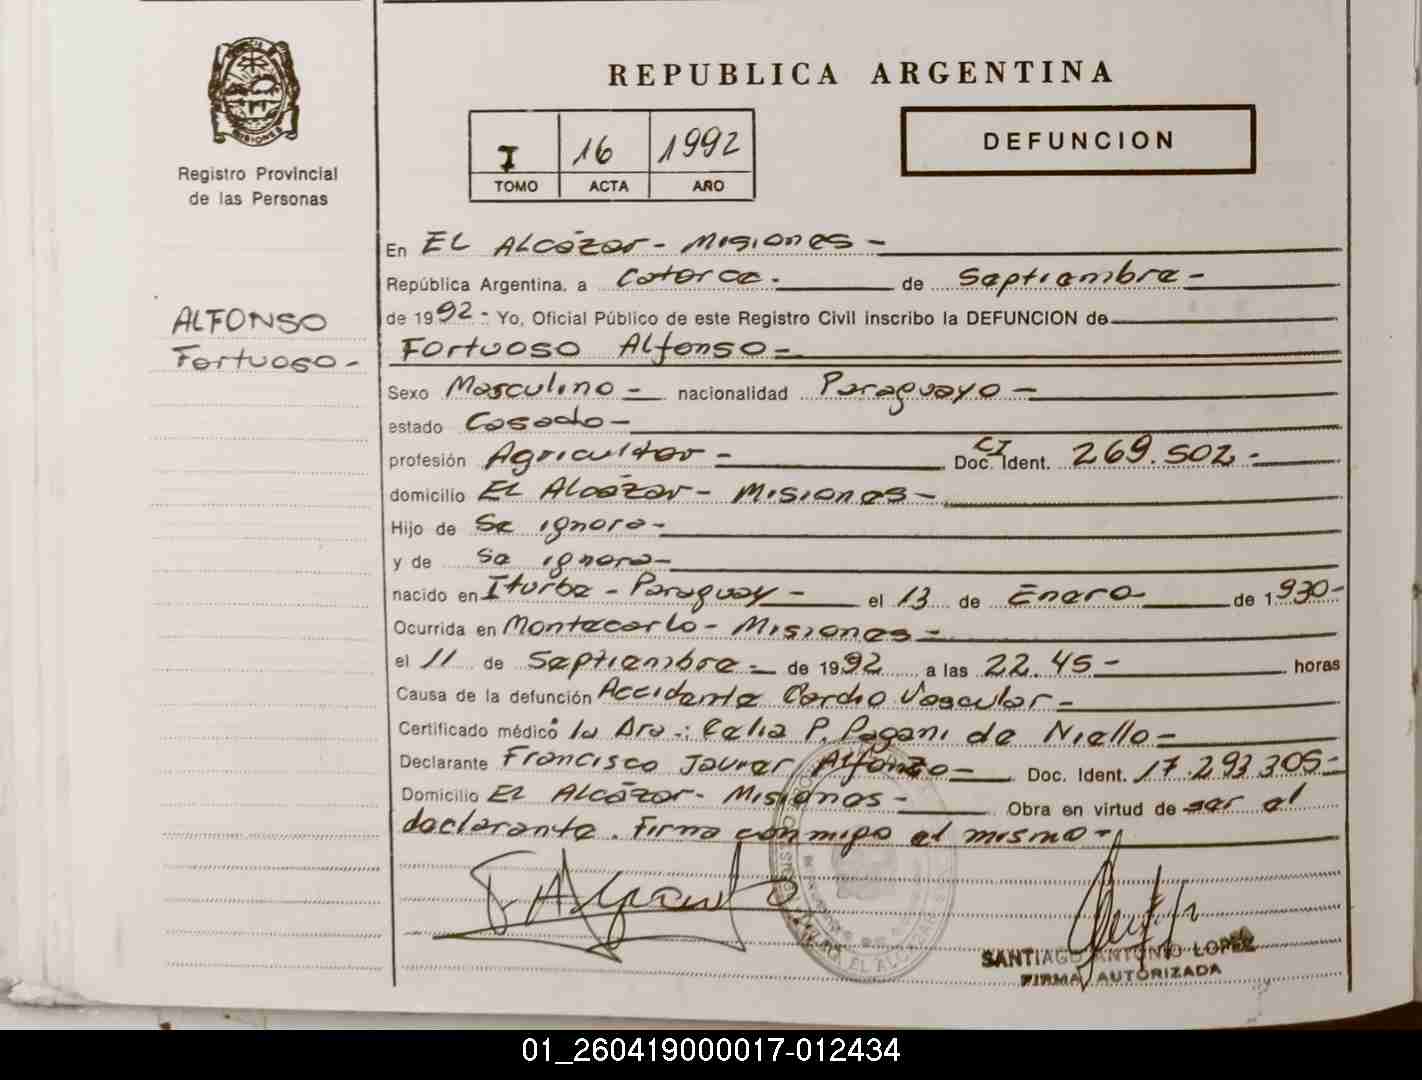 REPUBLICA ARGENTINA
MISIONES
Registro Provincial
de las Personas
I 16 1992
TOMO ACTA AÑO
DEFUNCION
ALFONSO
Fortuoso -
En EL Alcázar - Misiones -
República Argentina, a Catorce - de Septiembre -
de 1992 - Yo, Oficial Público de este Registro Civil inscribo la DEFUNCION de
Fortuoso Alfonso -
Sexo Masculino - nacionalidad Paraguayo -
estado Casado -
profesión Agricultor - Doc. Ident. CI 269.502 -
domicilio EL Alcázar - Misiones -
Hijo de Se ignora -
y de Se ignora -
nacido en Iturbe - Paraguay - el 13 de Enero de 1930 -
Ocurrida en Montecarlo - Misiones -
el 11 de Septiembre - de 1992 a las 22.45 - horas
Causa de la defunción Accidente Cardio Vascular -
Certificado médico la Dra.: Celia P. Pagani de Niello -
Declarante Francisco Javier Alfonzo - Doc. Ident. 17.293.305 -
Domicilio EL Alcázar - Misiones - Obra en virtud de ser el
declarante. Firma conmigo el mismo -
SANTIAGO ANTONIO LOPEZ
FIRMA AUTORIZADA
01_260419000017-012434